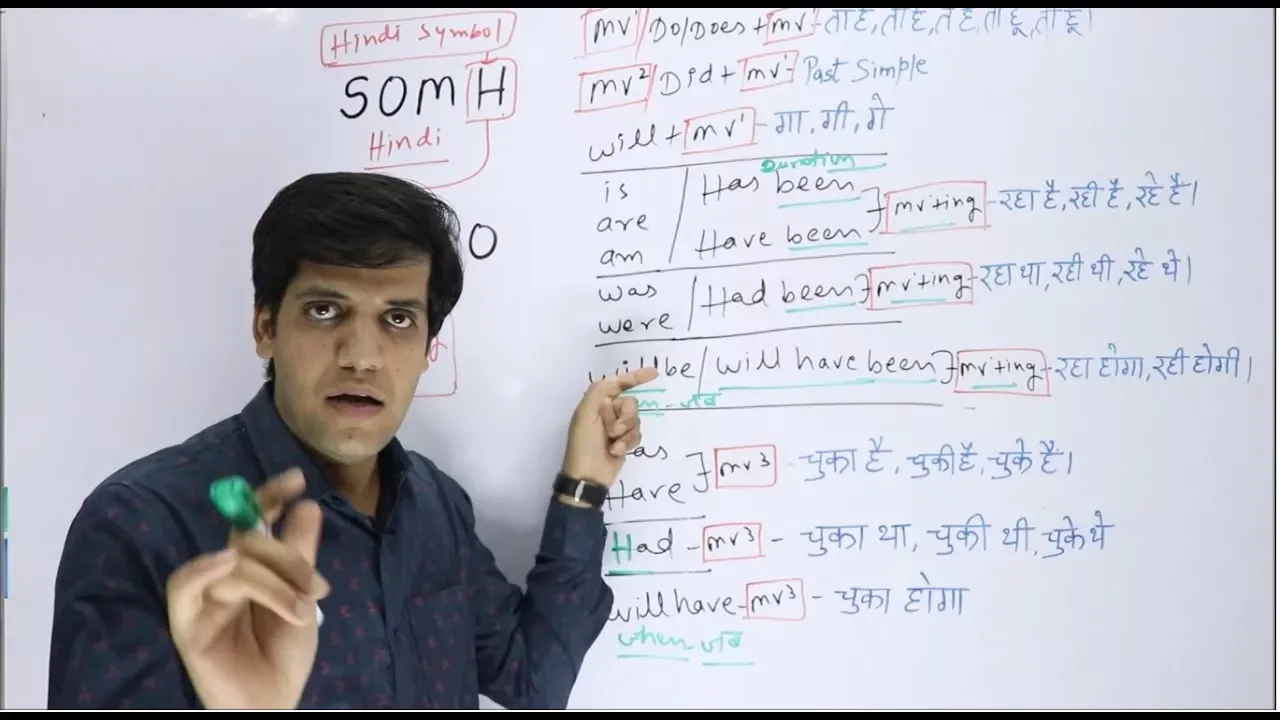 Hindi Symbol
SOMH
Hindi
O
mv¹/Do/Does + mv¹ - ता है, ती है, ते है, ता हूँ, ती हूँ।
mv²/Did + mv¹ - Past Simple
will + mv¹ - गा, गी, गे
Duration
is / Has been
are
am / Have been } mv¹+ing - रहा है, रही है, रहे है।
was / Had been } mv¹+ing - रहा था, रही थी, रहे थे।
were
will be / will have been } mv¹+ing - रहा होगा, रही होगी।
जब
Have } mv³ - चुका है, चुकी है, चुके है।
Had - mv³ - चुका था, चुकी थी, चुके थे
will have - mv³ - चुका होगा
when - जब